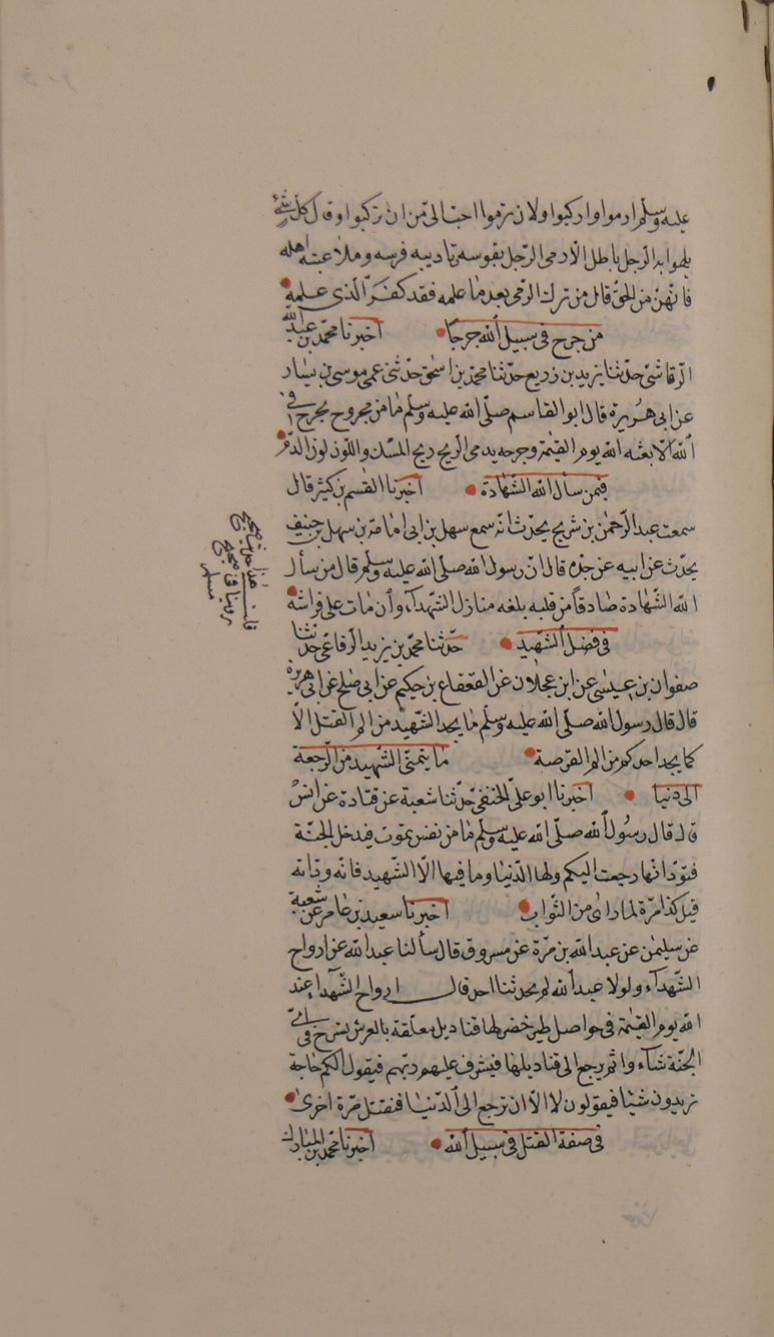 عليه وسلم ارموا واركبوا ولان ترموا احب الى من ان تركبوا وقال كل شئ
يلهو به الرجل باطل الا رمى الرجل بقوسه وتاديبه فرسه وملاعبته اهله
فانهن من الحق قال من ترك الرمى بعد ما علمه فقد كفر الذى علمه
من جرح فى سبيل الله جرحا اخبرنا محمد بن عبد الله
الرقاشى حدثنا يزيد بن زريع حدثنا محمد بن اسحق حدثنى عمى موسى بن يسار
عن ابى هريرة قال ابو القاسم صلى الله عليه وسلم ما من مجروح يجرح فى
الله الا بعثه الله يوم القيمة وجرحه يدمى الريح ريح المسك واللون لون الدم
فيمن سأل الله الشهادة اخبرنا القسم بن كثير قال
سمعت عبد الرحمن بن شريح يحدث انه سمع سهل بن ابى امامة بن سهل بن حنيف
يحدث عن ابيه عن جده قال ان رسول الله صلى الله عليه وسلم قال من سأل
الله الشهادة صادقا من قلبه بلغه منازل الشهدآء وأن مات على فراشه
فى فضل الشهيد حدثنا محمد بن يزيد الرفاعى حدثنا
صفوان بن عيسى عن ابن عجلان عن القعقاع بن حكيم عن ابى صلح عن ابى هريرة
قال قال رسول الله صلى الله عليه وسلم ما يجد الشهيد من الم القتل الا
كما يجد احدكم من الم القرصة ما يتمنى الشهيد من الرجعة
الى دنيا اخبرنا ابو على الحنفى حدثنا شعبة عن قتادة عن انس
قال قال رسول الله صلى الله عليه وسلم ما من نفس تموت فيدخل الجنة
فتود انها رجعت اليكم ولها الدنيا وما فيها الا الشهيد فانه ود انه
قيل كذا مرة لما راى من الثواب اخبرنا سعيد بن عامر عن شعبة
عن سليمن عن عبد الله بن مرة عن مسروق قال سألنا عبد الله عن ارواح
الشهدآء ولولا عبد الله لم يحدثنا احد قال ارواح الشهدآء عند
الله يوم القيمة فى حواصل طير خضر لها قناديل معلقة بالعرش تسرح فى اى
الجنة شآء واثم يرجع الى قناديلها فيشرف عليهم ربهم فيقول الكم حاجة
تريدون شيئا فيقولون لا الا ان ترجع الى الدنيا فنقتل مرة اخرى
فى صفة القتل فى سبيل الله اخبرنا محمد بن المبارك
قلت
هذا حديث صحيح